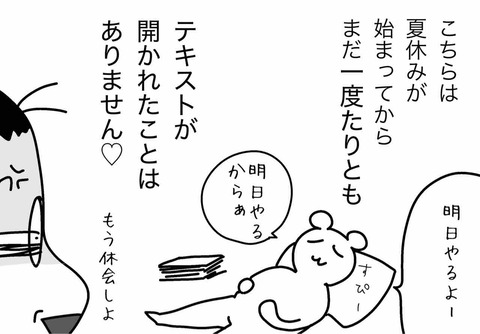 こちらは
夏休みが
始まってから
まだ一度たりとも
テキストが
開かれたことは
ありません♡
明日やるよー
明日やる
からぁ
すぴー
もう休会しよ